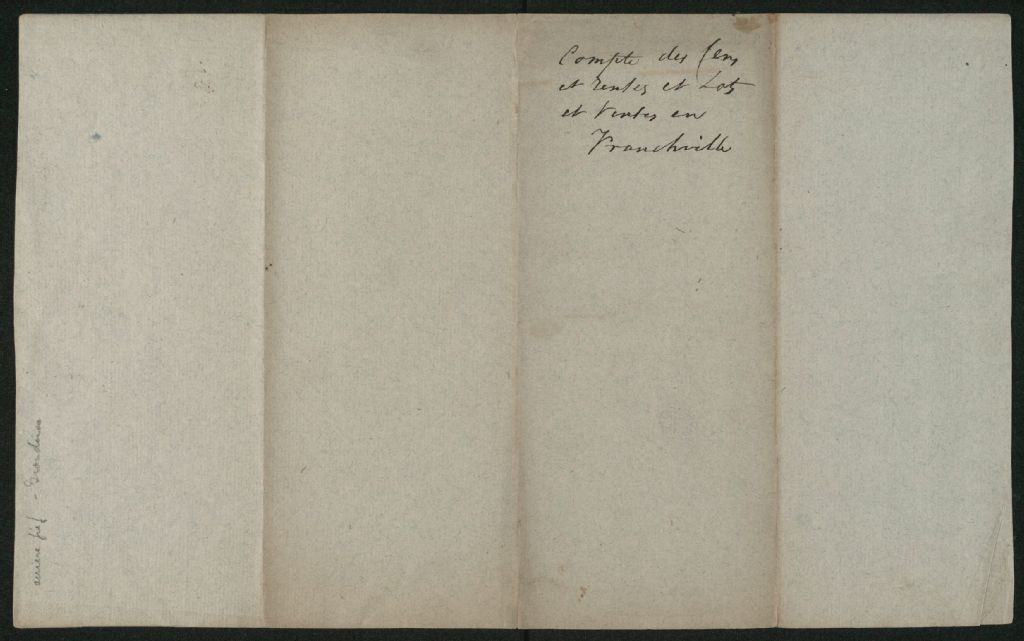 Compte des Cens
et rentes et Lots
et Ventes en
Franchville
arriere fief - Grondines